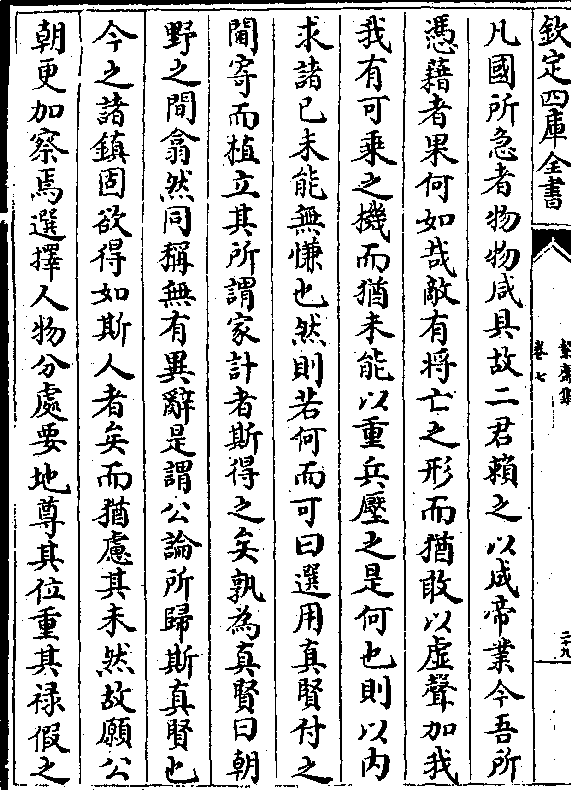 欽定四庫全書
絜齋集
卷七
二十九
凡國所急者物物咸具故二君賴之以成帝業今吾所
憑藉者果何如哉敵有将亡之形而猶敢以虚聲加我
我有可乗之機而猶未能以重兵壓之是何也則以内
求諸已未能無慊也然則若何而可曰選用真賢付之
閫寄而植立其所謂家計者斯得之矣孰為真賢曰朝
野之間翕然同稱無有異辭是謂公論所歸斯真賢也
今之諸鎮固欲得如斯人者矣而猶慮其未然故願公
朝更加察焉選擇人物分處要地尊其位重其禄假之